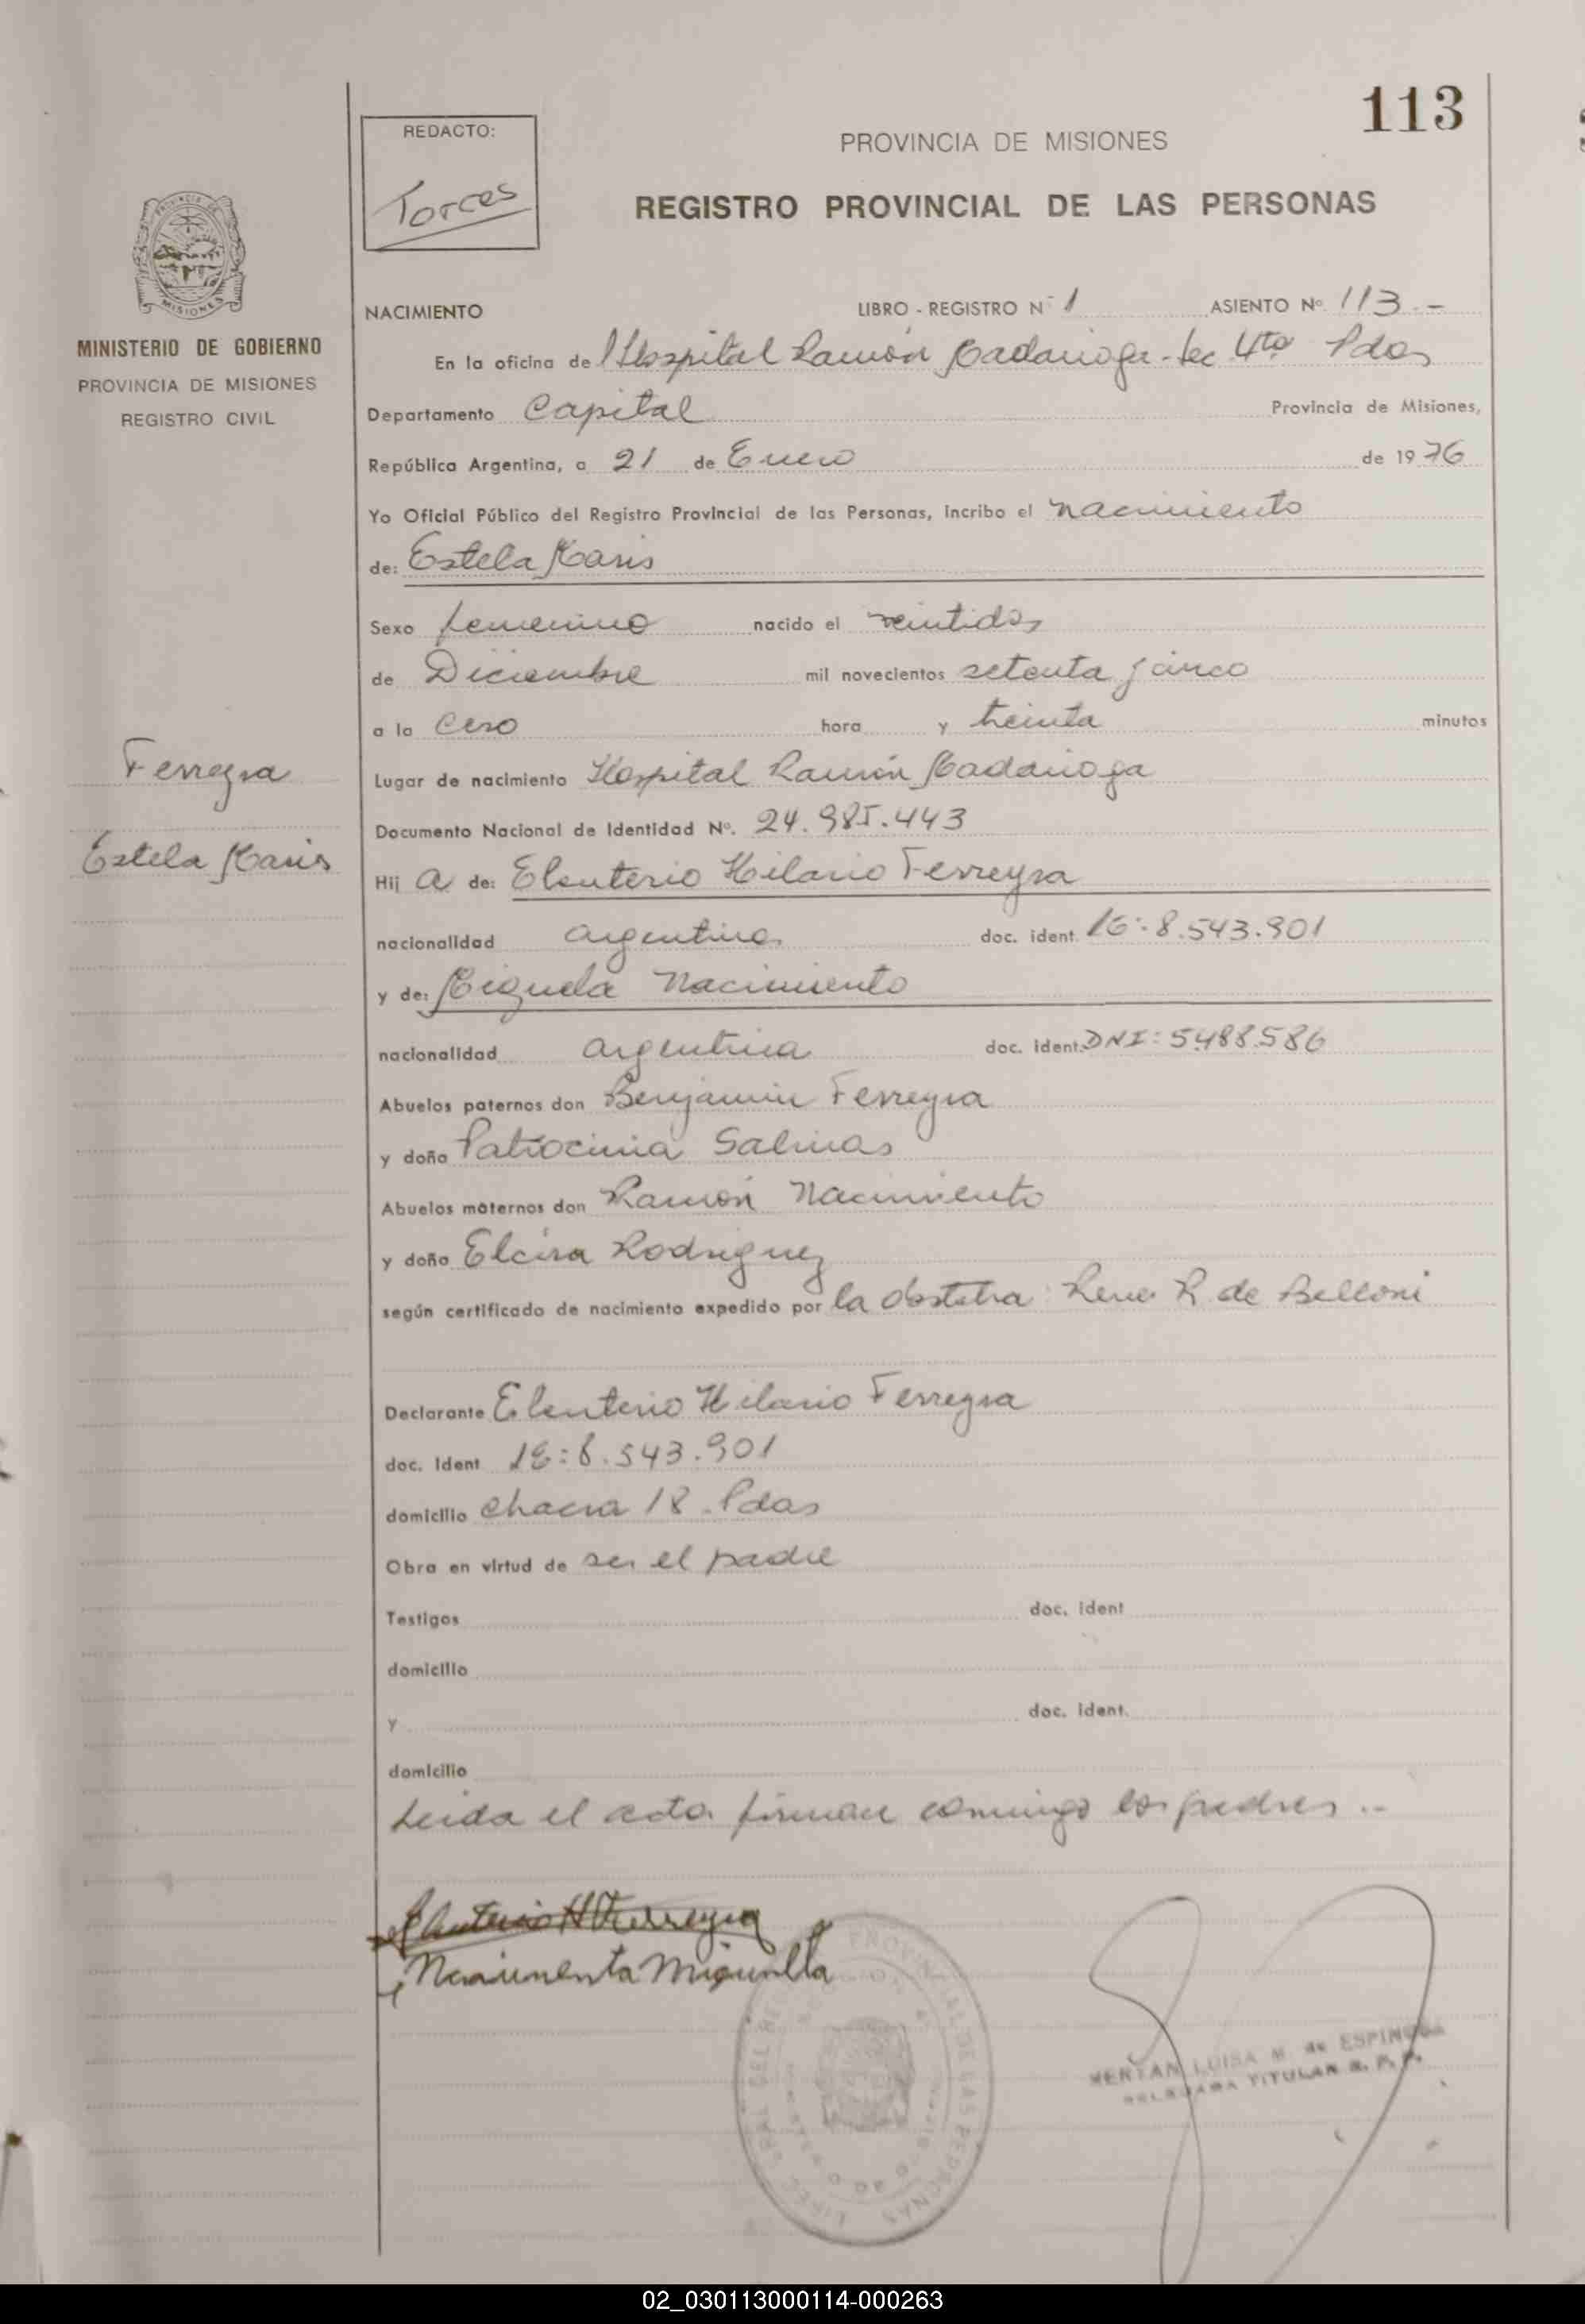 113
REDACTO:
Torres
PROVINCIA DE MISIONES
REGISTRO PROVINCIAL DE LAS PERSONAS
MISIONES
MINISTERIO DE GOBIERNO
PROVINCIA DE MISIONES
REGISTRO CIVIL
NACIMIENTO LIBRO - REGISTRO Nº 1 ASIENTO Nº 113.-
En la oficina de Hospital Ramón Madariaga - Sec 4ta Pdas
Departamento Capital Provincia de Misiones,
República Argentina, a 21 de Enero de 1976
Yo Oficial Público del Registro Provincial de las Personas, incribo el nacimiento
de: Estela Maris
Sexo femenino nacido el veintidos
de Diciembre mil novecientos setenta y cinco
a la cero hora y treinta minutos
Ferreyra
Estela Maris
Lugar de nacimiento Hospital Ramón Madariaga
Documento Nacional de Identidad Nº. 24.985.443
Hij a de: Eleuterio Hilario Ferreyra
nacionalidad argentina doc. ident. 8.543.901
y de: Miguela Nacimiento
nacionalidad argentina doc. ident. DNI: 5.488.586
Abuelos paternos don Benjamin Ferreyra
y doña Patrocinia Salinas
Abuelos maternos don Ramón Nacimiento
y doña Elcira Rodriguez
según certificado de nacimiento expedido por la obstetra Rene R de Belloni
Declarante Eleuterio Hilario Ferreyra
doc. ident 8.543.901
domicilio chacra 18. Pdas
Obra en virtud de ser el padre
Testigos doc. ident
domicilio
y doc. ident.
domicilio
Leida el acta firman conmigo los padres.-
Eleuterio H Ferreyra
LUISA M. de ESPINOSA
TITULAR R. P. P.
02_030113000114-000263